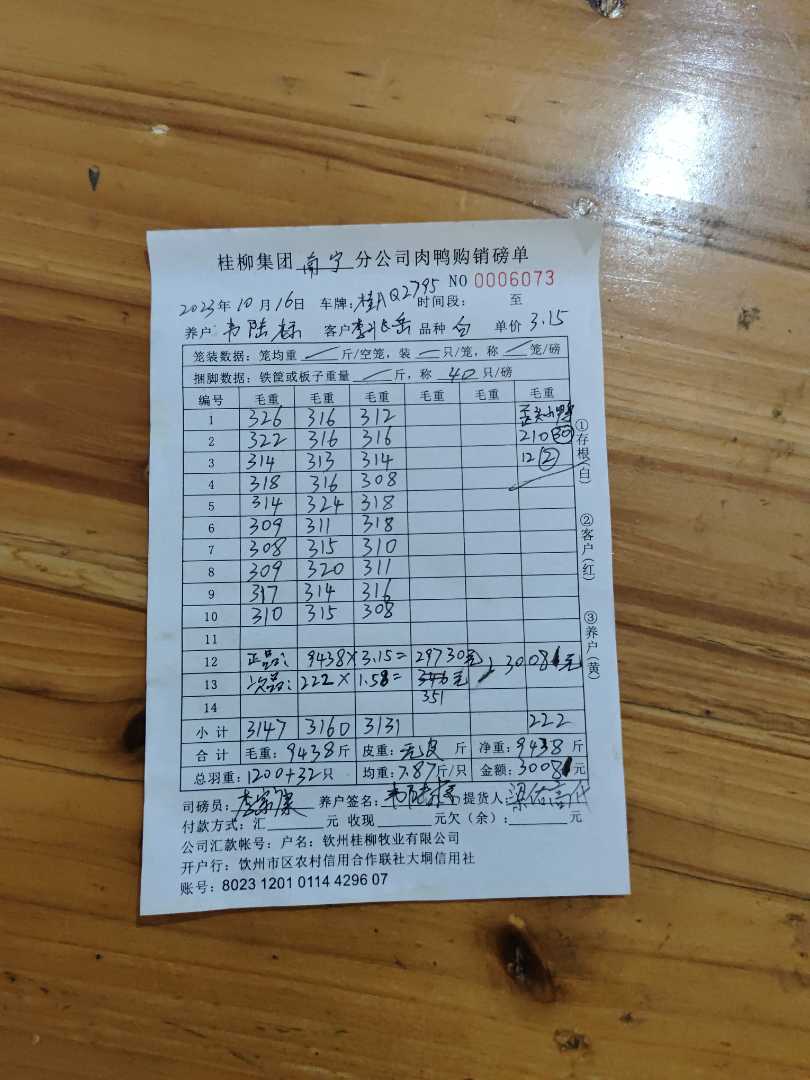 桂柳集团 南宁 分公司肉鸭购销磅单
NO 0006073
2023年10月16日 车牌:桂AQ2795 时间段: 至
养户:韦陆 客户 品种 白 单价 3.15
笼装数据:笼均重 斤/空笼,装 只/笼,称 笼/磅
捆脚数据:铁筐或板子重量 斤,称 40 只/磅
编号 毛重 毛重 毛重 毛重 毛重 毛重
1 326 316 312
2 322 316 316 210 30
3 314 313 314 12 2
4 318 316 308
5 314 324 318
6 309 311 318
7 308 315 310
8 309 320 311
9 317 314 316
10 310 315 308
11
12 正品: 9438×3.15= 29730元
13 次品: 222×1.58=
14 351
小计 3147 3160 3131 222
合计 毛重:9438斤 皮重:无皮 斤 净重:9438斤
总羽重:1200+32只 均重:7.87斤/只 金额:30081元
司磅员: 养户签名: 提货人:
付款方式:汇 元 收现 元欠(余): 元
公司汇款帐号:户名:钦州桂柳牧业有限公司
开户行:饮州市区农村信用合作联社大垌信用社
账号:8023 1201 0114 4296 07
①存根(白)
②客户(红)
③养户(黄)